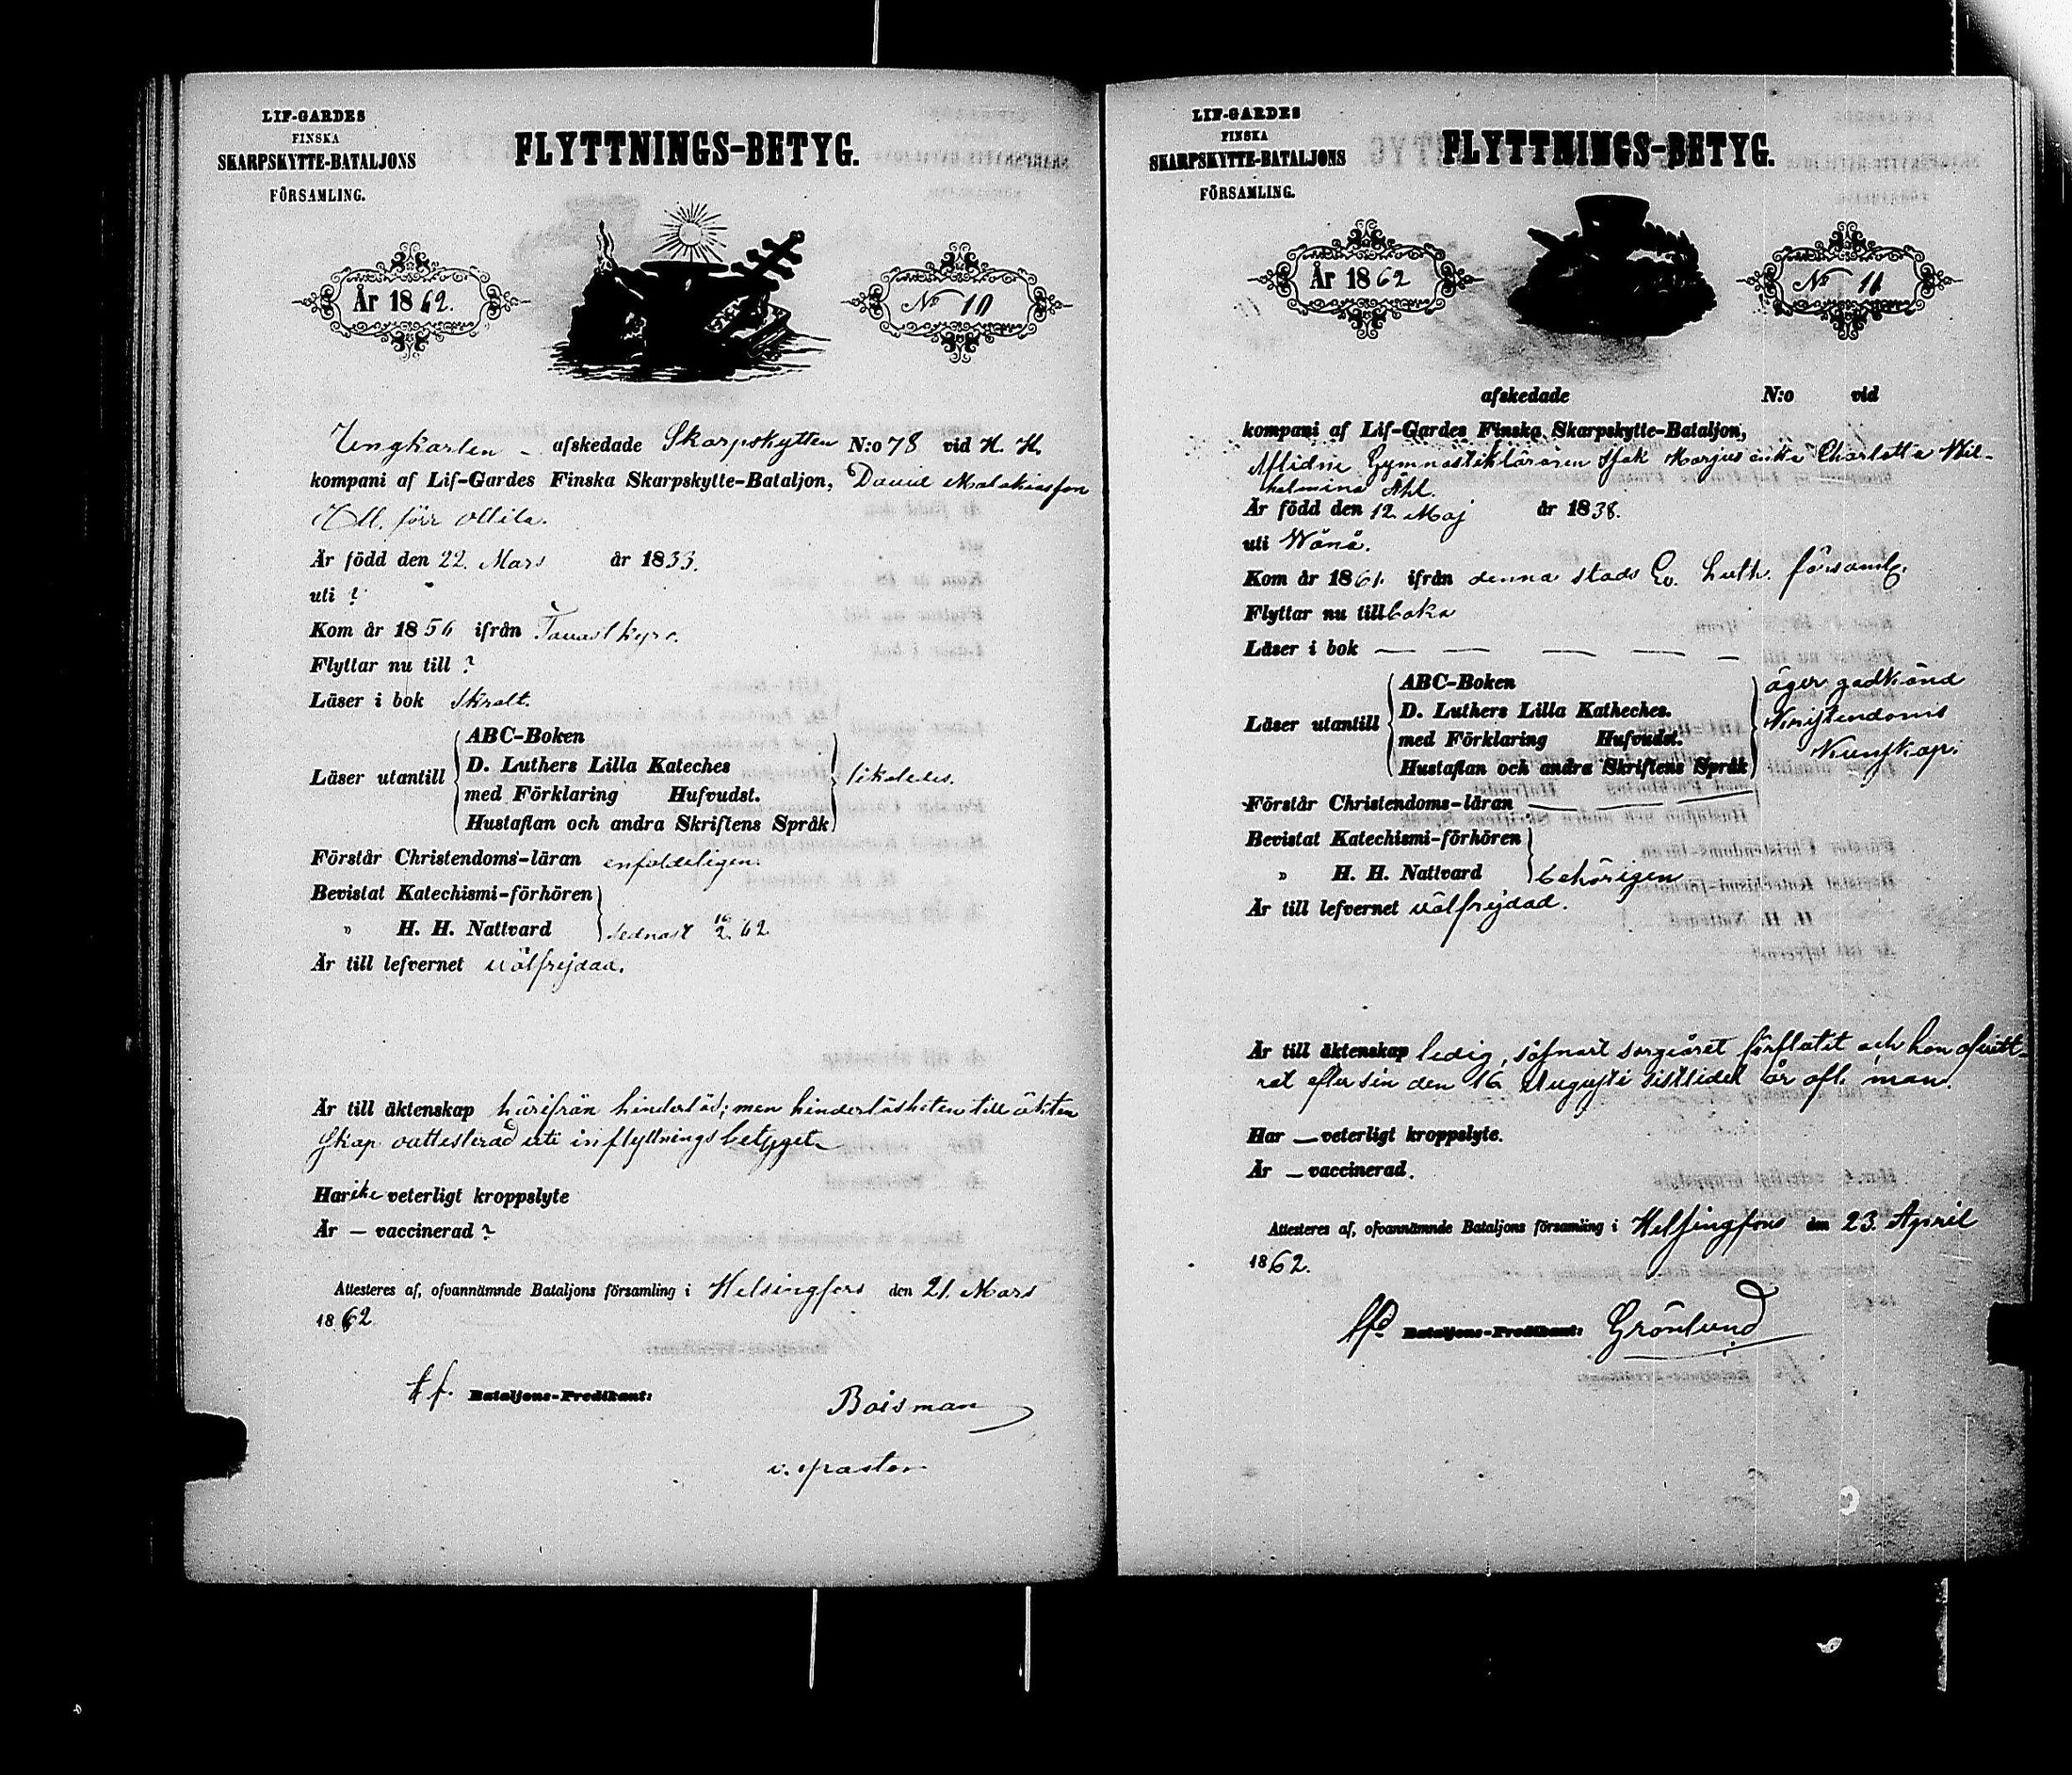 LIF-GARDES
FINSKA
SKARPSKYTTE-BATALJONS
FÖRSAMLING.
FLYTTNINGS-BETYG.
År 1862.
No 10
Ungkarlen - afskedade Skarpskytten N:o 78 vid H. H.
kompani af Lif-Gardes Finska Skarpskytte-Bataljon, David Malakiasson
förr Ollila.
Är född den 22. Mars år 1833.
uti ?
Kom år 1856 ifrån Tavastkyro.
Flyttar nu till ?
Läser i bok Skralt.
ABC-Boken
D. Luthers Lilla Kateches
Läser utantill med Förklaring Hufvudst. likaledes.
Hustaflan och andra Skriftens Språk
Förstår Christendoms-läran enfaldeligen.
Bevistat Katechismi-förhören
" H. H. Nattvard sednast 16/2 62
Är till lefvernet välfrejdad.
Är till äktenskap härifrån hinderlös; men hinderlösheten till äkten
skap oattesterad uti inflyttningsbetyget.
Har ike veterligt kroppslyte
Är – vaccinerad ?
Attesteres af, ofvannämnde Bataljons församling i Helsingfors den 21. Mars
1862
tf. Bataljons-Predikant: Boisman
v. pastor
LIF-GARDES
FINSKA
SKARPSKYTTE-BATALJONS
FÖRSAMLING.
FLYTTNINGS-BETYG.
År 1862
No 11
afskedade N:o vid
kompani af Lif-Gardes Finska Skarpskytte-Bataljon,
Aflidne Gymnastikläraren enka Charlotta Wil-
helmina Ahl.
Är född den 12. Maj år 1838.
uti Wånå.
Kom år 1861. ifrån denna stads Ev. Luth. församl.
Flyttar nu tillbaka
Läser i bok — — — — —
ABC-Boken äger godkänd
D. Luthers Lilla Katheches. Kristendoms
Läser utantill med Förklaring Hufvudst. Kunskap.
Hustaflan och andra Skriftens Språk
Förstår Christendoms-läran — — —
Bevistat Katechismi-förhören
" H. H. Nattvard behörigen
Är till lefvernet välfrejdad.
Är till äktenskap ledig, såsnart sorgeåret förflutit och hon afvitt-
rat efter sin den 16 Augusti sistlidet år afl. man.
Har — veterligt kroppslyte.
Är — vaccinerad.
Attesteres af, ofvannämnde Bataljons församling i Helsingfors den 23. April
1862.
Bataljons-Predikant: Grönlund